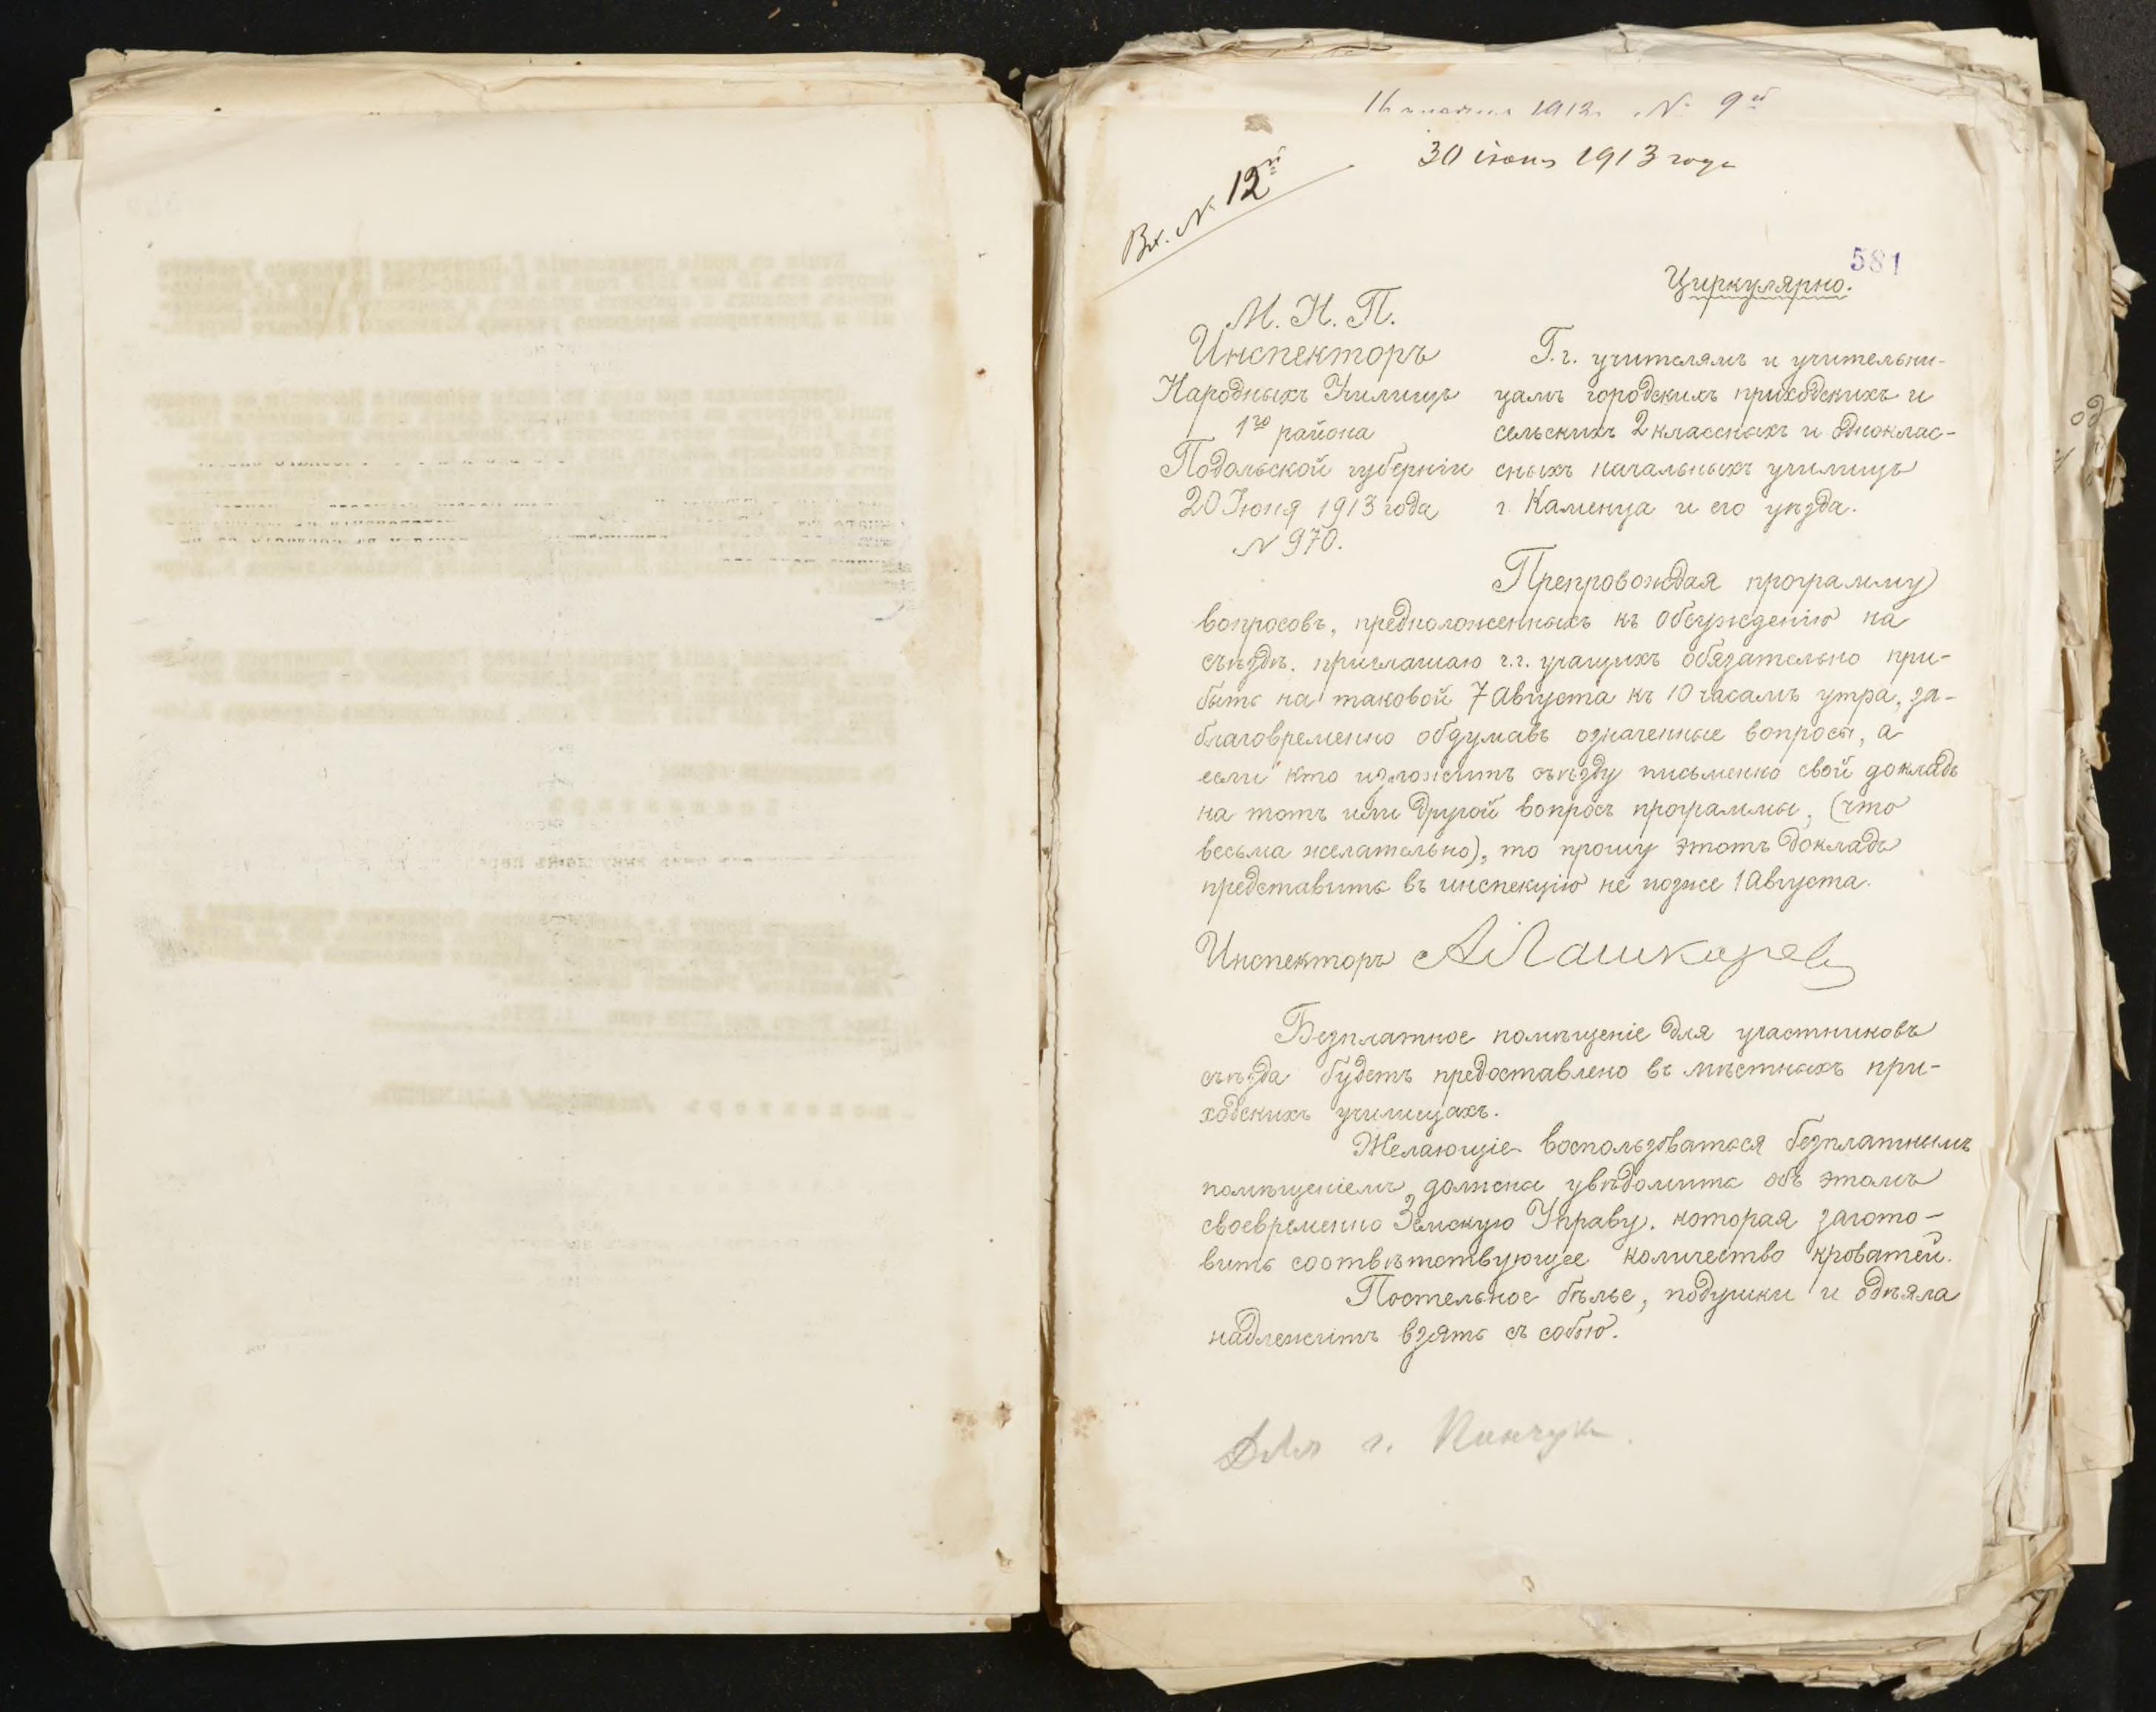 1913 № 9
30 іюня 1913 года
Вх. № 12й
581
Циркулярно.
М. Н. П.
Инспекторъ
Народныхъ Училищъ
1го района
Подольской губерніи
20 Іюня 1913 года
№ 970.
Г.г. учителямъ и учительни-
цамъ городскихъ приходскихъ и
сельскихъ 2 классныхъ и одноклас-
сныхъ начальныхъ училищъ
г. Каменца и его уѣзда.
Препровождая программу
вопросовъ, предположенныхъ къ обсужденію на
съѣздѣ, приглашаю г.г. учащихъ обязательно при-
быть на таковой 7 Августа къ 10 часамъ утра, за-
благовременно обдумавъ означенные вопросы, а
если кто изложитъ съѣзду письменно свой докладъ
на тотъ или другой вопросъ программы, (что
весьма желательно), то прошу этотъ докладъ
представить въ инспекцію не позже 1 Августа.
Инспекторъ АЛашкарев
Безплатное помѣщеніе для участниковъ
съѣзда будетъ предоставлено въ мѣстныхъ при-
ходскихъ училищахъ.
Желающіе воспользоваться безплатнымъ
помѣщеніемъ, должны увѣдомить объ этомъ
своевременно Земскую Управу, которая загото-
витъ соотвѣтствующее количество кроватей.
Постельное бѣлье, подушки и одѣяла
надлежитъ взять съ собою.
Для г.